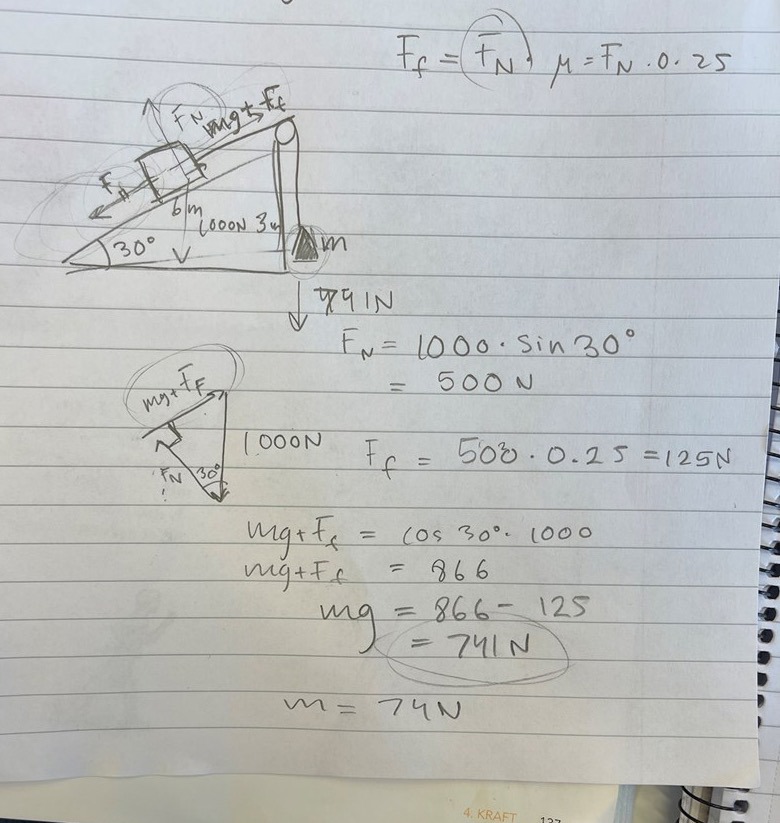 F_f = F_N · μ = F_N · 0.25
F_N
mg + F_f
6m
1000N 3m
30°
m
741N
F_N = 1000 · sin 30°
= 500 N
mg + F_F
1000N
F_N 30°
!
F_f = 500 · 0.25 = 125N
mg + F_f = cos 30° · 1000
mg + F_f = 866
mg = 866 - 125
= 741N
m = 74N
4. KRAFT 137